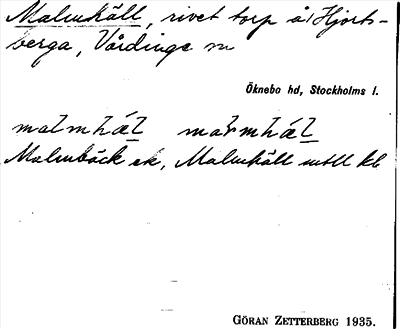 Malmkäll, rivet torp å Hjorts-
berga, Vårdinge sn
Öknebo hd, Stockholms l.
Malmbäck ek, Malmkäll
GÖRAN ZETTERBERG 1935.